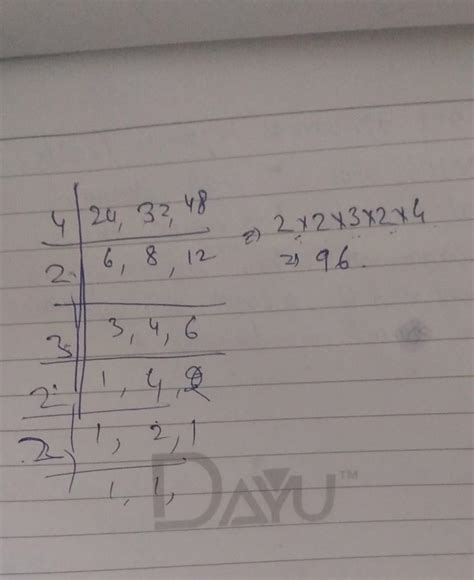 4 | 24, 32, 48
2 | 6, 8, 12
3 | 3, 4, 6
2 | 1, 4, 2
2 | 1, 2, 1
1, 1,
⇒ 2×2×3×2×4
⇒ 96.
DAYU™